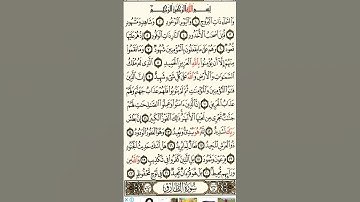 بِسْمِ اللهِ الرَّحْمٰنِ الرَّحِيْمِ
وَالسَّمَآءِ ذَاتِ الْبُرُوْجِ ۝ وَالْيَوْمِ الْمَوْعُوْدِ ۝ وَشَاهِدٍ وَّمَشْهُوْدٍ ۝
قُتِلَ اَصْحٰبُ الْاُخْدُوْدِ ۝ النَّارِ ذَاتِ الْوَقُوْدِ ۝ اِذْ هُمْ عَلَيْهَا
قُعُوْدٌ ۝ وَّهُمْ عَلٰى مَا يَفْعَلُوْنَ بِالْمُؤْمِنِيْنَ شُهُوْدٌ ۝ وَمَا نَقَمُوْا
مِنْهُمْ اِلَّآ اَنْ يُّؤْمِنُوْا بِاللهِ الْعَزِيْزِ الْحَمِيْدِ ۝ الَّذِيْ لَهٗ مُلْكُ
السَّمٰوٰتِ وَالْاَرْضِ وَاللهُ عَلٰى كُلِّ شَيْءٍ شَهِيْدٌ ۝ اِنَّ الَّذِيْنَ
فَتَنُوا الْمُؤْمِنِيْنَ وَالْمُؤْمِنٰتِ ثُمَّ لَمْ يَتُوْبُوْا فَلَهُمْ عَذَابُ جَهَنَّمَ وَلَهُمْ
عَذَابُ الْحَرِيْقِ ۝ اِنَّ الَّذِيْنَ اٰمَنُوْا وَعَمِلُوا الصّٰلِحٰتِ لَهُمْ
جَنّٰتٌ تَجْرِيْ مِنْ تَحْتِهَا الْاَنْهٰرُ ذٰلِكَ الْفَوْزُ الْكَبِيْرُ ۝ اِنَّ بَطْشَ
رَبِّكَ لَشَدِيْدٌ ۝ اِنَّهٗ هُوَ يُبْدِئُ وَيُعِيْدُ ۝ وَهُوَ الْغَفُوْرُ الْوَدُوْدُ ۝
ذُو الْعَرْشِ الْمَجِيْدُ ۝ فَعَّالٌ لِّمَا يُرِيْدُ ۝ هَلْ اَتٰىكَ حَدِيْثُ الْجُنُوْدِ ۝
فِرْعَوْنَ وَثَمُوْدَ ۝ بَلِ الَّذِيْنَ كَفَرُوْا فِيْ تَكْذِيْبٍ ۝ وَّاللهُ مِنْ
وَّرَآئِهِمْ مُّحِيْطٌ ۝ بَلْ هُوَ قُرْاٰنٌ مَّجِيْدٌ ۝ فِيْ لَوْحٍ مَّحْفُوْظٍ ۝
سُوْرَةُ الطَّارِقِ